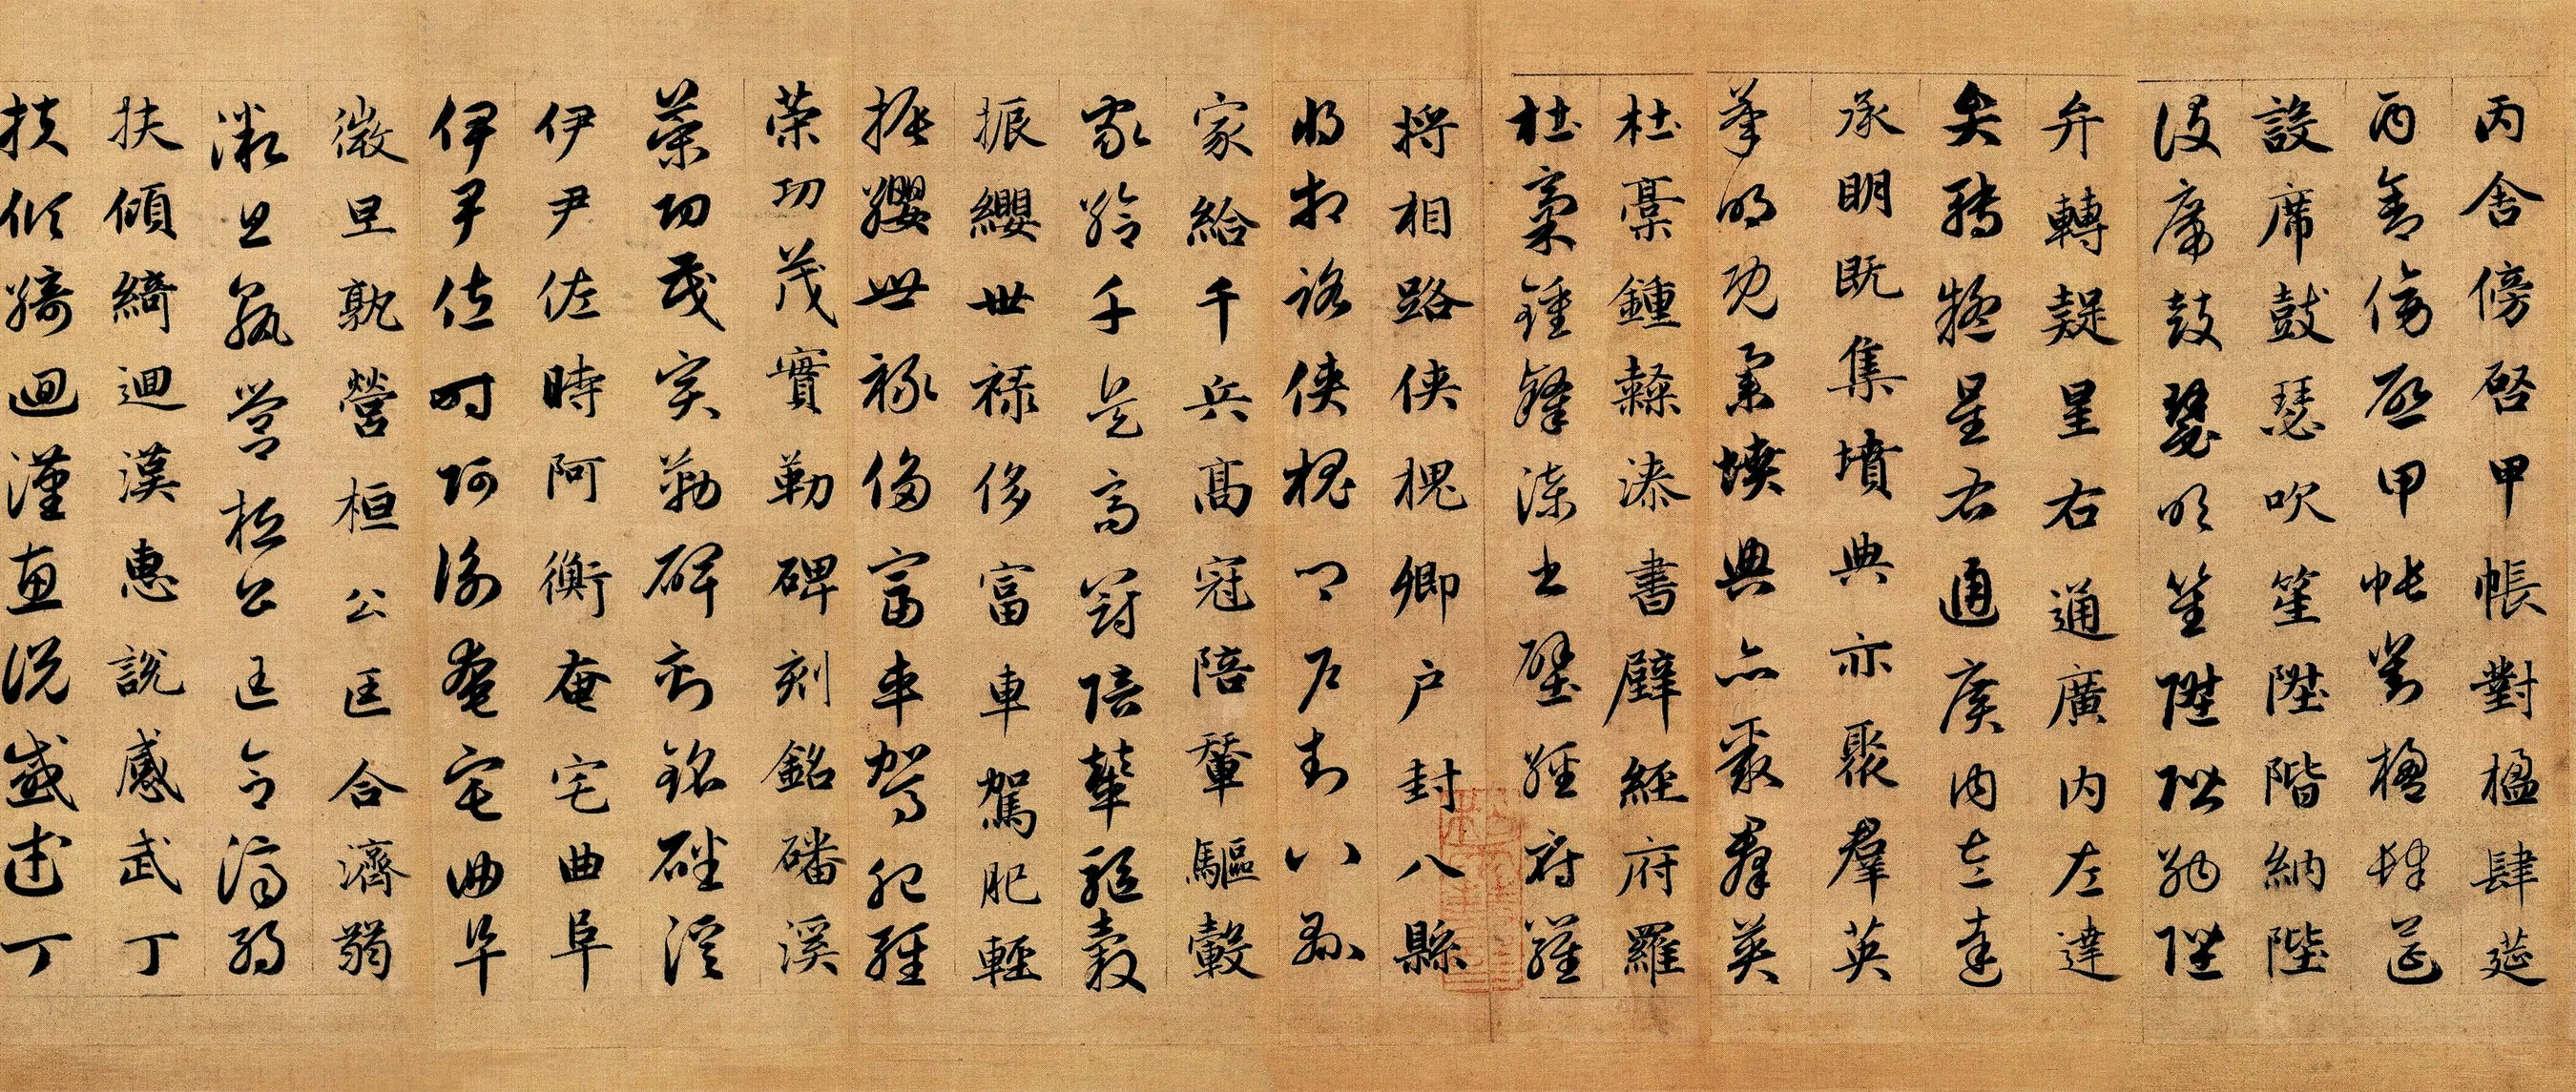 丙舍傍啓甲帳對楹肆筵
丙舍傍啓甲帳對楹肆筵
設席鼓瑟吹笙陞階納陛
設席鼓瑟吹笙陞階納陛
弁轉疑星右通廣内左達
弁轉疑星右通廣内左達
承明既集墳典亦聚羣英
承明既集墳典亦聚羣英
杜稾鍾隸漆書壁經府羅
杜稾鍾隸漆書壁經府羅
將相路俠槐卿户封八縣
將相路俠槐卿户封八縣
家給千兵高冠陪輦驅轂
家給千兵高冠陪輦驅轂
振纓世禄侈富車駕肥輕
振纓世禄侈富車駕肥輕
榮功茂實勒碑刻銘磻溪
榮功茂實勒碑刻銘磻溪
伊尹佐時阿衡奄宅曲阜
伊尹佐時阿衡奄宅曲阜
微旦孰營桓公匡合濟弱
微旦孰營桓公匡合濟弱
扶傾綺迴漢惠說感武丁
扶傾綺迴漢惠說感武丁